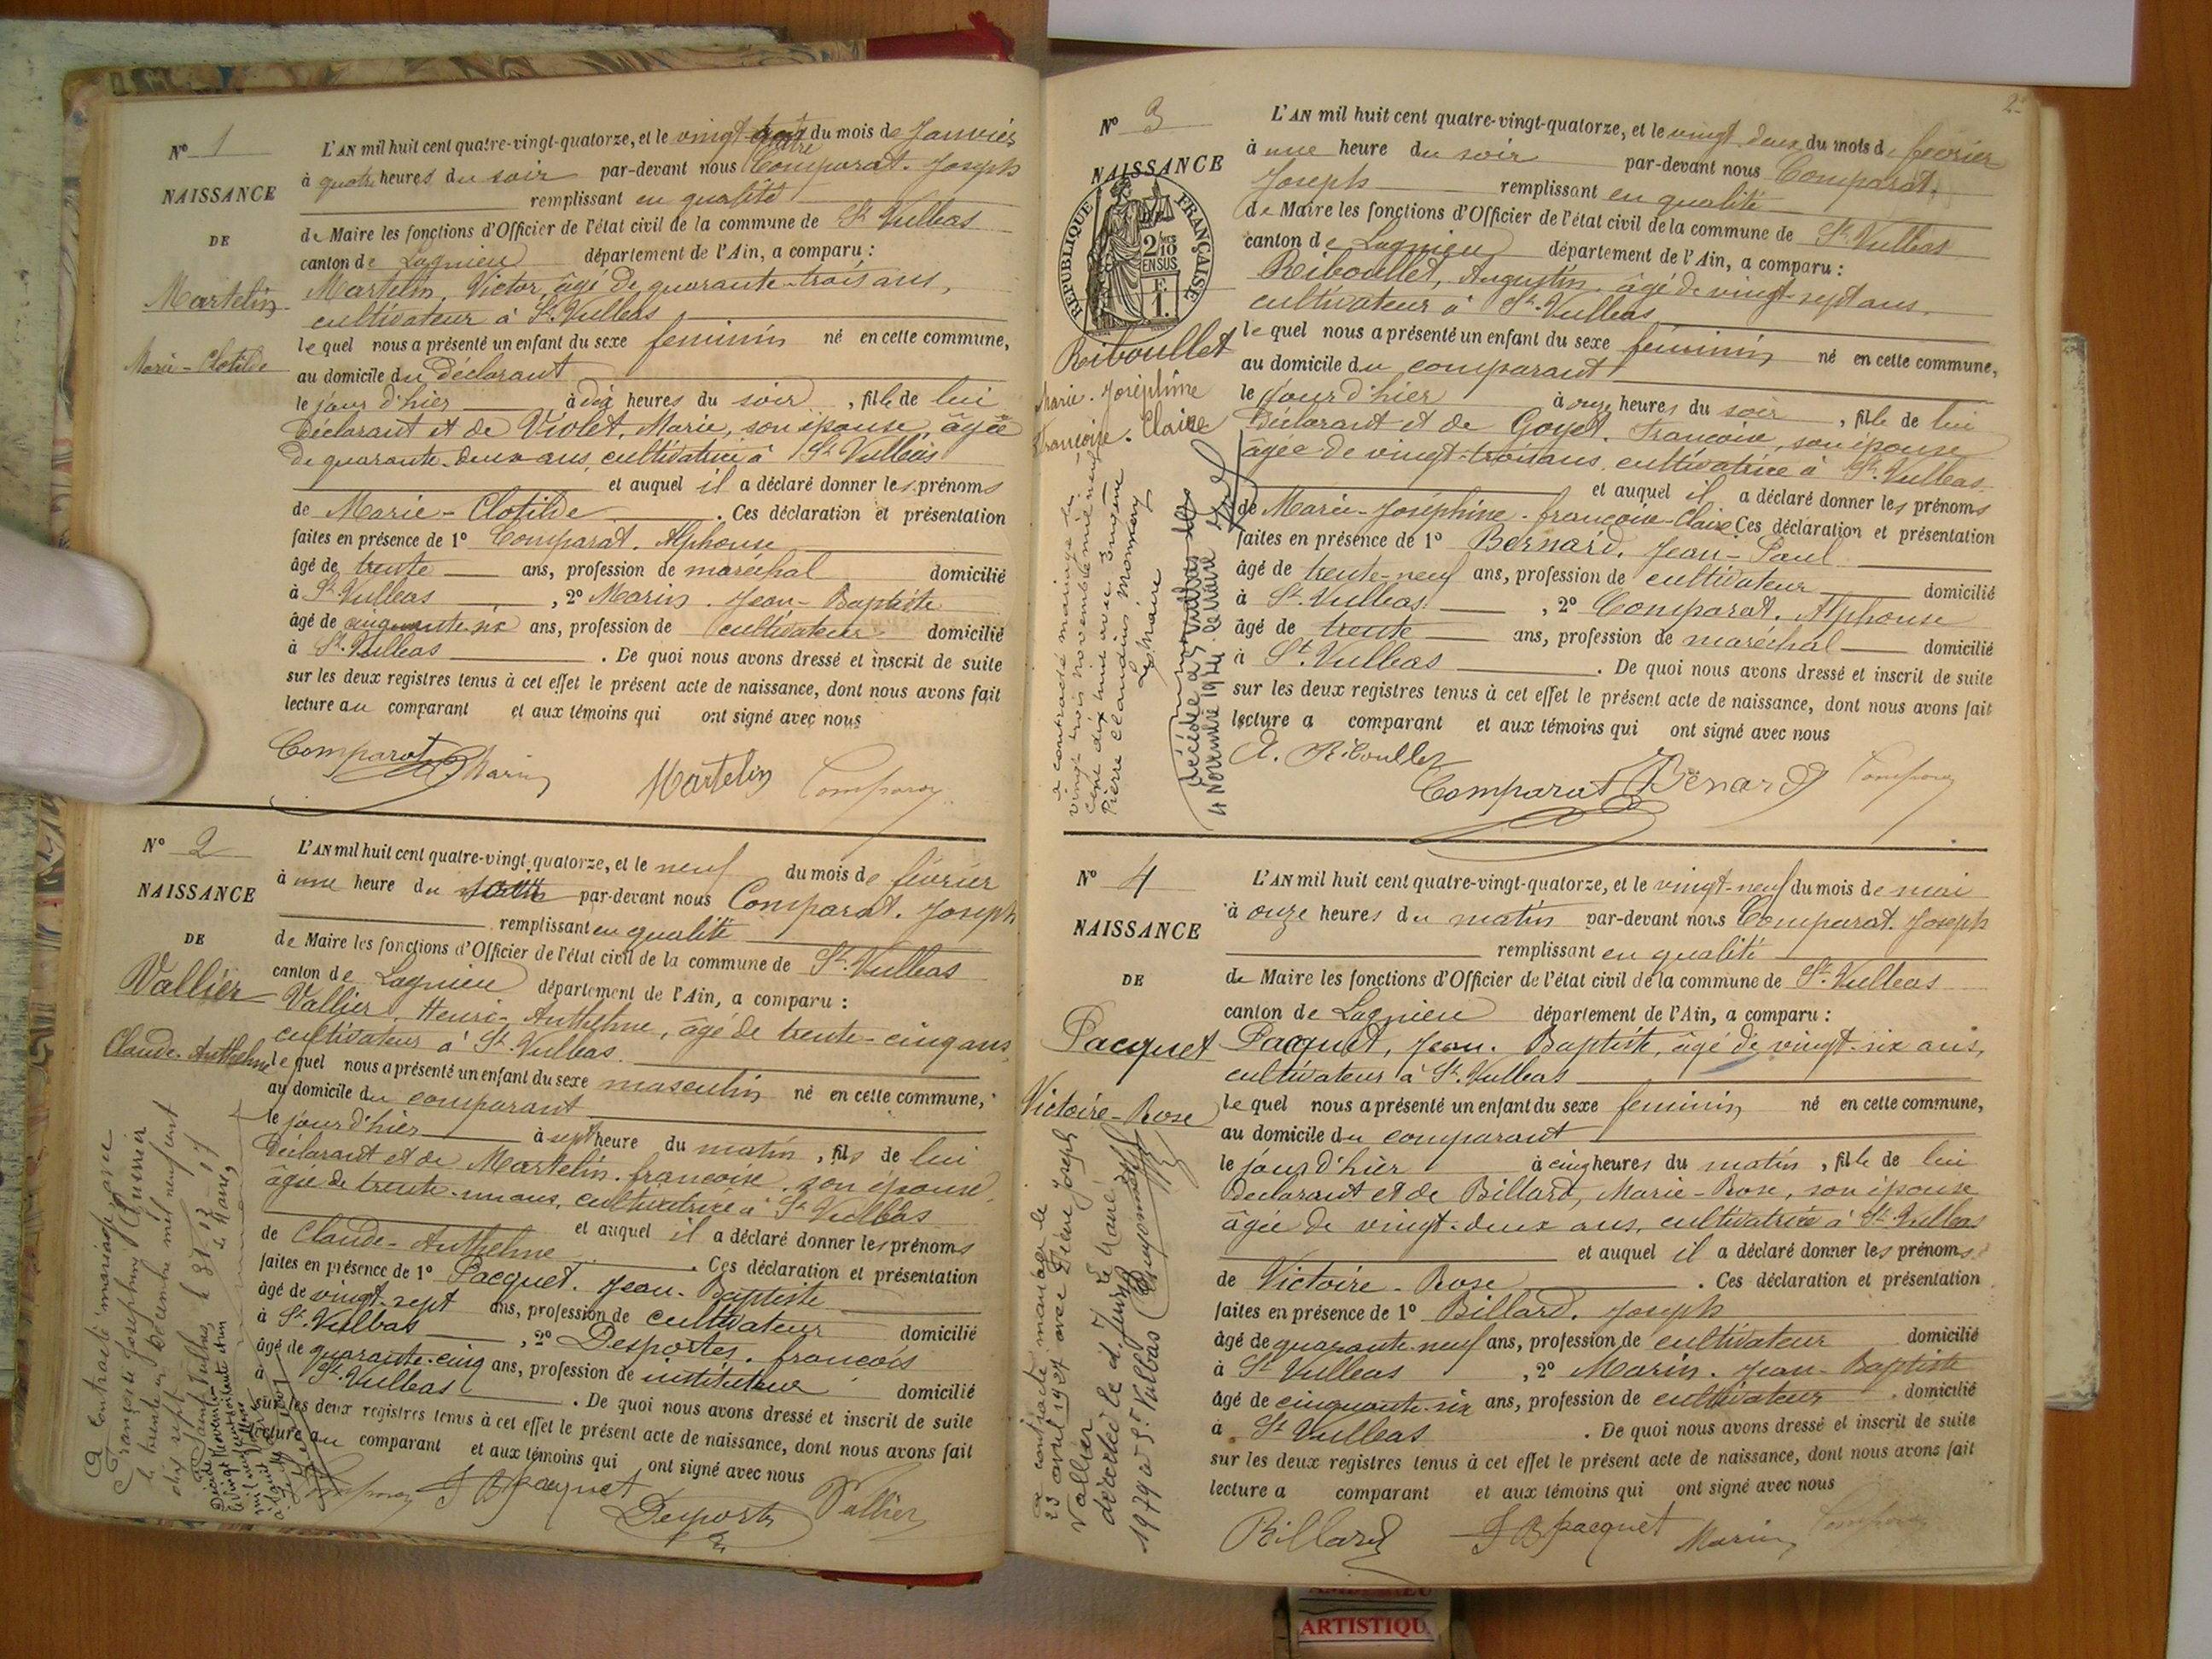 Nº 1
NAISSANCE
DE
Martelin
Marie-Clotilde
L'AN mil huit cent quatre-vingt-quatorze, et le vingt quatre du mois de Janvier
à quatre heures du soir par-devant nous Comparat. Joseph
remplissant en qualité
de Maire les fonctions d'Officier de l'état civil de la commune de St Vulbas
canton de Lagnieu département de l'Ain, a comparu :
Martelin, Victor, âgé de quarante-trois ans,
cultivateur à St. Vulbas
lequel nous a présenté un enfant du sexe feminin né en cette commune,
au domicile du déclarant
le jour d'hier à dix heures du soir, fille de lui
Déclarant et de Violet, Marie, son épouse, âgée
de quarante-deux ans, cultivatrice à St Vulbas
et auquel il a déclaré donner les prénoms
de Marie-Clotilde. Ces déclaration et présentation
faites en présence de 1º Comparat. Alphonse
âgé de trente ans, profession de maréchal domicilié
à St. Vulbas, 2º Marin. Jean-Baptiste
âgé de cinquante six ans, profession de cultivateur domicilié
à St. Vulbas. De quoi nous avons dressé et inscrit de suite
sur les deux registres tenus à cet effet le présent acte de naissance, dont nous avons fait
lecture au comparant et aux témoins qui ont signé avec nous
Comparat Marin Martelin Comparat
Nº 2
NAISSANCE
DE
Vallier
Claude-Anthelme
L'AN mil huit cent quatre-vingt-quatorze, et le neuf du mois de février
à une heure du soir par-devant nous Comparat. Joseph
remplissant en qualité
de Maire les fonctions d'Officier de l'état civil de la commune de St. Vulbas
canton de Lagnieu département de l'Ain, a comparu :
Vallier, Henri-Anthelme, âgé de trente-cinq ans
cultivateur à St. Vulbas
lequel nous a présenté un enfant du sexe masculin né en cette commune,
au domicile du comparant
le jour d'hier à sept heure du matin, fils de lui
Déclarant et de Martelin. françoise. son épouse,
âgée de trente-un ans, cultivatrice à St Vulbas
et auquel il a déclaré donner les prénoms
de Claude-Anthelme. Ces déclaration et présentation
faites en présence de 1º Pacquet. Jean-Baptiste
âgé de vingt-sept ans, profession de cultivateur domicilié
à St. Vulbas, 2º Desportes. françois
âgé de quarante-cinq ans, profession de instituteur domicilié
à St. Vulbas. De quoi nous avons dressé et inscrit de suite
sur les deux registres tenus à cet effet le présent acte de naissance, dont nous avons fait
lecture au comparant et aux témoins qui ont signé avec nous
J B pacquet Desportes Vallier
A contracté mariage avec
Françoise Josephine
le trente un Décembre mil neuf cent
dix sept
Saint Vulbas, le 31.12.17
Le Maire,
2
Nº 3
NAISSANCE
RÉPUBLIQUE FRANÇAISE
2/10 EN SUS
F. 1.
Riboullet
Marie. Joséphine
Françoise. Claire
L'AN mil huit cent quatre-vingt-quatorze, et le vingt deux du mois de février
à une heure du soir par-devant nous Comparat.
Joseph remplissant en qualité
de Maire les fonctions d'Officier de l'état civil de la commune de St Vulbas
canton de Lagnieu département de l'Ain, a comparu :
Riboullet, Augustin. âgé de vingt-sept ans,
cultivateur à St. Vulbas
lequel nous a présenté un enfant du sexe féminin né en cette commune,
au domicile du comparant
le jour d'hier à onze heures du soir, fille de lui
Déclarant et de Goyet. Françoise, son épouse
âgée de vingt-trois ans, cultivatrice à St. Vulbas
et auquel il a déclaré donner les prénoms
de Marie-Joséphine-françoise-Claire Ces déclaration et présentation
faites en présence de 1º Bernard. Jean-Paul
âgé de trente-neuf ans, profession de cultivateur domicilié
à St. Vulbas, 2º Comparat. Alphonse
âgé de trente ans, profession de maréchal domicilié
à St. Vulbas. De quoi nous avons dressé et inscrit de suite
sur les deux registres tenus à cet effet le présent acte de naissance, dont nous avons fait
lecture a comparant et aux témoins qui ont signé avec nous
A. Riboullet
Comparat Bernard Comparat
a contracté mariage le
vingt trois novembre mil neuf
cent dix huit avec
Pierre Claudius
Le Maire
décédée à St Vulbas
4 Novembre 1974
Nº 4
NAISSANCE
DE
Pacquet
Victoire-Rose
L'AN mil huit cent quatre-vingt-quatorze, et le vingt-neuf du mois de mai
à onze heures du matin par-devant nous Comparat. Joseph
remplissant en qualité
de Maire les fonctions d'Officier de l'état civil de la commune de St. Vulbas
canton de Lagnieu département de l'Ain, a comparu :
Pacquet, Jean. Baptiste, âgé de vingt-six ans,
cultivateur à St. Vulbas
lequel nous a présenté un enfant du sexe feminin né en cette commune,
au domicile du comparant
le jour d'hier à cinq heures du matin, fille de lui
Déclarant et de Billard, Marie-Rose, son épouse
âgée de vingt-deux ans, cultivatrice à St. Vulbas
et auquel il a déclaré donner les prénoms
de Victoire-Rose. Ces déclaration et présentation
faites en présence de 1º Billard. Joseph
âgé de quarante-neuf ans, profession de cultivateur domicilié
à St Vulbas, 2º Marin. Jean-Baptiste
âgé de cinquante-six ans, profession de cultivateur domicilié
à St Vulbas. De quoi nous avons dressé et inscrit de suite
sur les deux registres tenus à cet effet le présent acte de naissance, dont nous avons fait
lecture a comparant et aux témoins qui ont signé avec nous
Billard J B pacquet Marin Comparat
a contracté mariage le
23 avril 1927 avec Pierre Joseph
Vallier
décédée le 7
1979 à St. Vulbas
ARTISTIQU